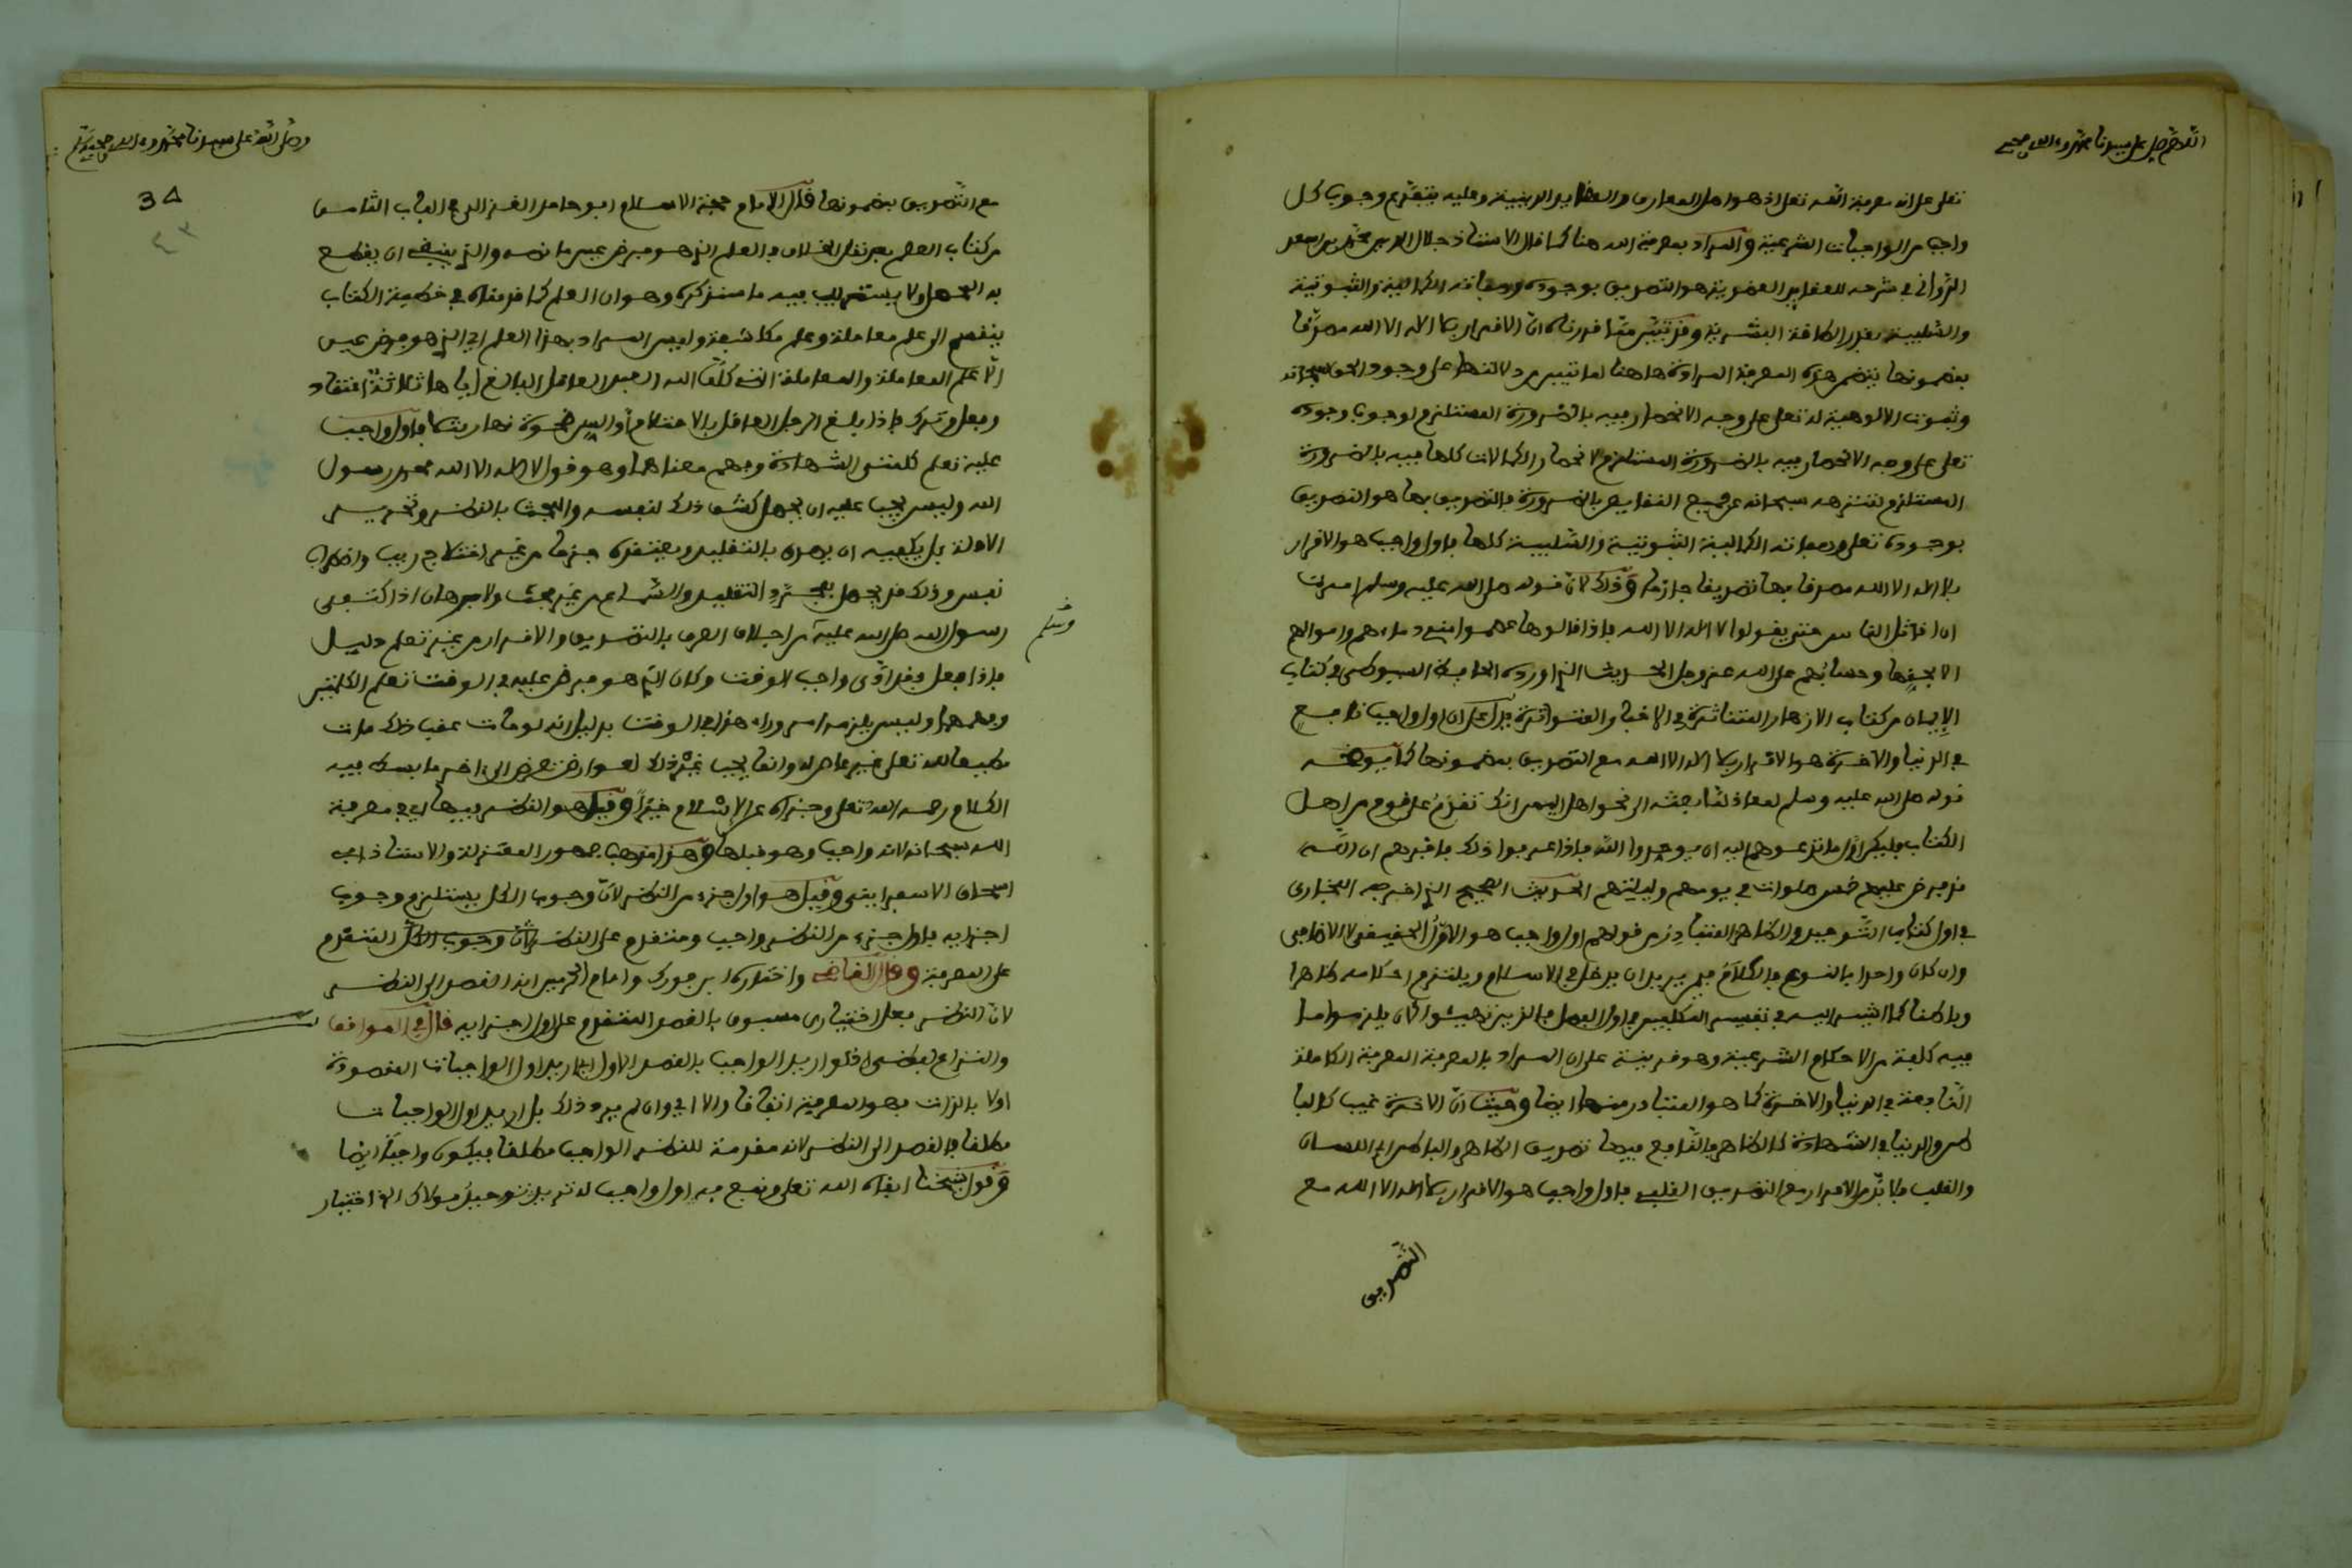 اللهم صل على سيدنا محمد وءاله وصحبه
تعلى على انه معرفة الله تعلى اذ هو اصل المعارف والعقايد الدينية وعليه يتفرع وجوب كل
واجب من الواجبات الشرعية والمراد بمعرفة الله هنا كما قال الاستاذ جلال الدين محمد بن اسعد
الدواني في شرحه للعقايد العضدية هو التصديق بوجوده وصفاته الكمالية الثبوتية
والسلبية بقدر الطاقة البشرية وقد تبين مما قررناه ان الاقرار بلا اله الا الله مصدقا
بمضمونها يتضمن هذه المعرفة المرادة هاهنا لما تبين من دلالتها على وجود الحق سبحانه
وثبوت الالوهية له تعلى على وجه الانحصار فيه بالضرورة المستلزم لوجوب وجوده
تعلى على وجه الانحصار فيه بالضرورة المستلزم لانحصار الكمالات كلها فيه بالضرورة
المستلزم لتنزهه سبحانه عن جميع النقايص بالضرورة فالتصديق بها هو التصديق
بوجوده تعلى وصفاته الكمالية الثبوتية والسلبية كلها فاول واجب هو الاقرار
بلا اله الا الله مصدقا بها تصديقا جازما وذلك لان قوله صلى الله عليه وسلم امرت
ان اقاتل الناس حتى يقولوا لا اله الا الله فاذا قالوها عصموا مني دماءهم واموالهم
الا بحقها وحسابهم على الله عز وجل الحديث الذي اورده الحافظ السيوطي في كتاب
الايمان من كتاب الازهار المتناثرة في الاخبار المتواترة يدل على ان اول واجب نافع
في الدنيا والاخرة هو الاقرار بلا اله الا الله مع التصديق بمضمونها كما يوضحه
قوله صلى الله عليه وسلم لمعاذ لما بعثه الى نحو اهل اليمن انك تقدم على قوم من اهل
الكتاب فليكن اول ما تدعوهم اليه ان يوحدوا الله فاذا عرفوا ذلك فاخبرهم ان الله
قد فرض عليهم خمس صلوات في يومهم وليلتهم الحديث الصحيح الذي اخرجه البخاري
في اول كتاب التوحيد والظاهر المتبادر من قولهم اول واجب هو الاول الحقيقي لا الاضافي
وان كان واحدا بالنوع فالكلام فيمن يريد ان يدخل في الاسلام ويلتزم احكامه ظاهرا
وباطنا كما اشير اليه في تفسير المكلفين في اول الفصل فالذين نهيئوا لان يلزموا ما
فيه كلفة من الاحكام الشرعية وهو قرينة على ان المراد بالمعرفة المعرفة الكاملة
النافعة في الدنيا والاخرة كما هو المتبادر منها ايضا وحيث ان الاخرة غيب كالبا
طن والدنيا في الشهادة كالظاهر فالنافع فيهما تصديق الظاهر والباطن اي اللسان
والقلب فلا بد من الاقرار مع التصديق القلبي فاول واجب هو الاقرار بلا اله الا الله مع
التصديق
وصلى الله على سيدنا محمد وءاله وصحبه وسلم
34
٤٣
مع التصديق بمضمونها قال الامام حجة الاسلام ابو حامد الغزالي في الباب الثاني
من كتاب العلم بعد نقل الخلاف في العلم الذي هو فرض عين ما نصه والذي ينبغي ان يقطع
به المحصل ولا يستريب فيه ما سنذكره وهو ان العلم كما قدمناه في خطبة الكتاب
ينقسم الى علم معاملة وعلم مكاشفة وليس المراد بهذا العلم اي الذي هو فرض عين
الا علم المعاملة والمعاملة التي كلف الله العبد العاقل البالغ اياها ثلاثة اعتقاد
وفعل وترك فاذا بلغ الرجل العاقل بالاحتلام او السن ضحوة نهار مثلا فاول واجب
عليه تعلم كلمتي الشهادة وفهم معناهما وهو قول لا اله الا الله محمد رسول
الله وليس يجب عليه ان يحصل كشف ذلك لنفسه والبحث بالنظر وتحرير
الادلة بل يكفيه ان يصدق بالتقليد ويعتقده جزما من غير اختلاج ريب واضطراب
نفس وذلك قد يحصل بمجرد التقليد والسماع من غير بحث ولا برهان اذ اكتفى
رسول الله صلى الله عليه من اجلاف العرب بالتصديق والاقرار من غير تعلم دليل
وسلم
فاذا فعل فقد ادى واجب الوقت وكان الذي هو فرض عليه في الوقت تعلم الكلمتين
وفهمهما وليس يلزمه امر وراء هذا في الوقت بدليل انه لو مات عقب ذلك مات
مطيعا لله تعلى غير عاص له وانما يجب غير ذلك لعوارض تعرض الى ءاخر ما بسط فيه
الكلام رحمه الله تعلى وجزاه عن الاسلام خيرا وقيل هو النظر فيها اي في معرفة
الله سبحانه لانه واجب وهو قبلها وهذا مذهب جمهور المعتزلة والاستاذ ابي
اسحاق الاسفرايني وقيل هو اول جزء من النظر لان وجوب الكل يستلزم وجوب
اجزايه فاول جزء من النظر واجب ومتقدم على النظر لان وجوب الكل المتقدم
على المعرفة وقال القاضي واختاره ابن فورك وامام الحرمين انه القصد الى النظر
لان النظر فعل اختياري مسبوق بالقصد المتقدم على اول اجزايه قال في المواقف
والنزاع لفظي اذ لو اريد الواجب بالقصد الاول اي اريد اول الواجبات المقصودة
اولا بالذات فهو المعرفة اتفاقا والا اي وان لم يرد ذلك بل اريد اول الواجبات
مطلقا فالقصد الى النظر لانه مقدمة للنظر الواجب مطلقا فيكون واجبا ايضا
وقول شيخنا ابقاه الله تعلى ونفع به اول واجب